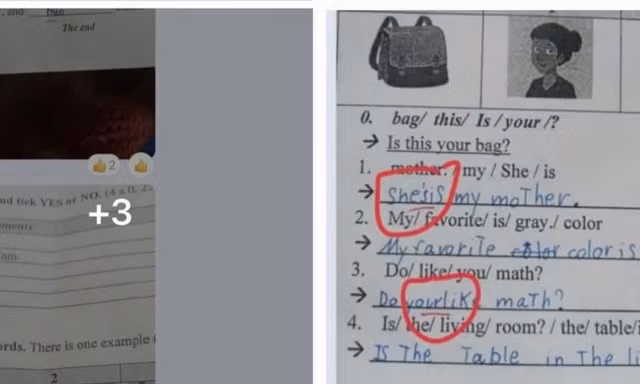 , and thus
The end
2
nd tick YES or NO. (4 x 0, 2
+3
ords. There is one example (
2
0. bag/ this/ Is / your /?
→ Is this your bag?
1. mother. / my / She / is
→ She'sis my moTher.
2. My/ favorite/ is/ gray./ color
→ My favoriTe color color is
3. Do/ like/ you/ math?
→ Do yourlike maTh?
4. Is/ the/ living/ room? / the/ table/i
→ IS The Table in The li